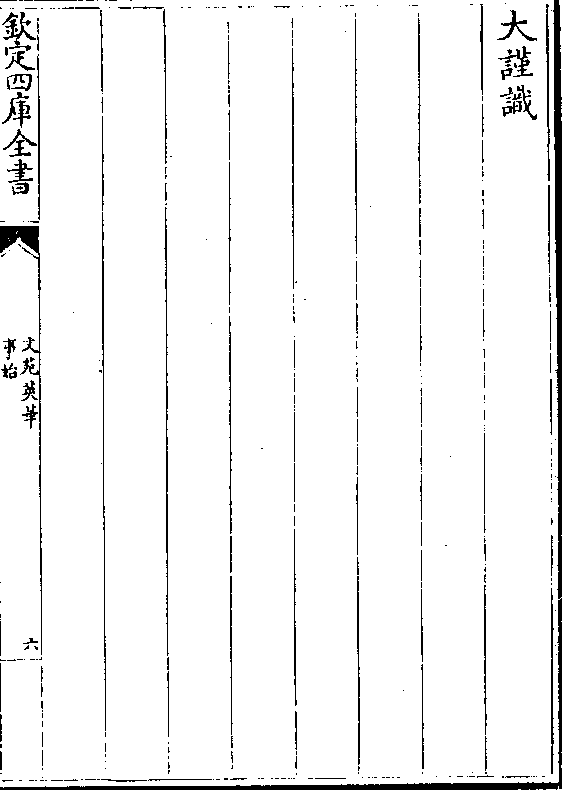 大謹識
欽定四庫全書
文苑英華
事始
六